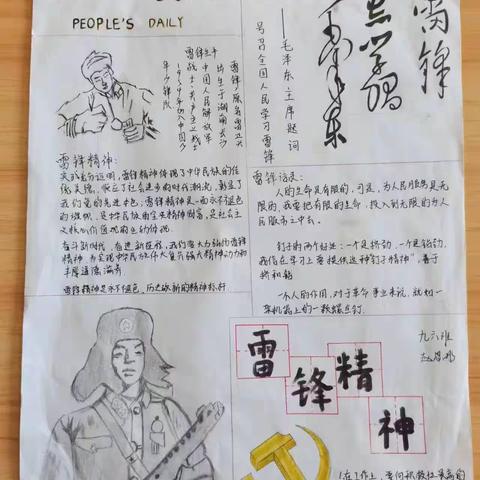 PEOPLE'S DAILY
雷锋
向雷锋同志学习
毛泽东
——毛泽东主席题词
号召全国人民学习雷锋
雷锋生平
雷锋,原名雷正兴
出生于湖南长沙
中国人民解放军
战士,共产主义战士
1954年加入中国少
年少锋队
雷锋精神:
实践充分证明,雷锋精神体现了中华民族的传
统美德,顺应了社会进步的时代潮流,彰显了
我们党的先进本色,雷锋精神是一面永不褪色
的旗帜,是中华民族的宝贵精神财富,是社会主
义核心价值观的生动体现。
在新时代,奋进新征程,我们要大力弘扬雷锋
精神,为实现中华民族伟大复兴强大精神动力和
丰厚道德滋养
雷锋精神是永不褪色、历久弥新的精神标杆
雷锋语录:
人的生命是有限的,可是,为人民服务是无
限的,我要把有限的生命,投入到无限的为人
民服务之中去。
钉子有两个好处:一个是挤劲,一个是钻劲,
我们在学习上要提供这种"钉子精神",善于
挤和钻
一个人的作用,对于革命事业来说,就如一
架机器上的一颗螺丝钉.
九六班
雷
锋
精
神